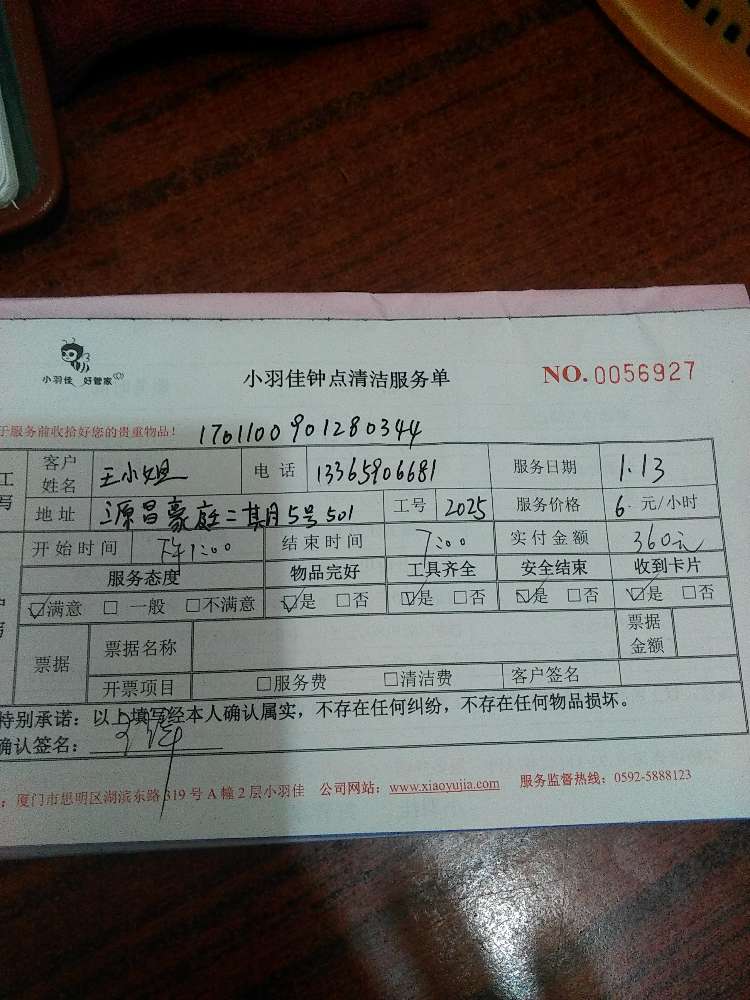 小羽佳 好管家
小羽佳钟点清洁服务单
NO. 0056927
于服务前收拾好您的贵重物品！ 1701100901280344
客户姓名 王小姐 电话 13365906681 服务日期 1.13
地址 源昌豪庭二期5号501 工号 2025 服务价格 6. 元/小时
开始时间 下午1:00 结束时间 7:00 实付金额 360元
服务态度 物品完好 工具齐全 安全结束 收到卡片
☑满意 □一般 □不满意 ☑是 □否 ☑是 □否 ☑是 □否 ☑是 □否
票据 票据名称 票据金额
开票项目 □服务费 □清洁费 客户签名
特别承诺：以上填写经本人确认属实，不存在任何纠纷，不存在任何物品损坏。
确认签名：
：厦门市思明区湖滨东路319号A幢2层小羽佳 公司网站：www.xiaoyujia.com 服务监督热线：0592-5888123